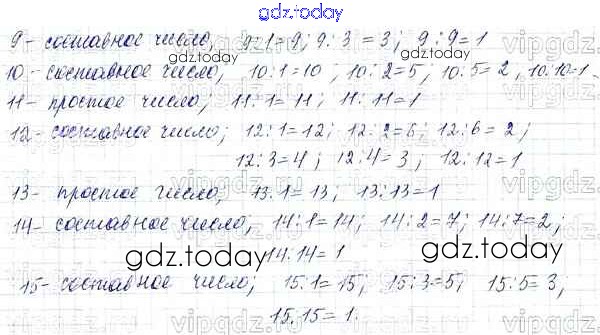 gdz.today
9 - составное число, 9:1=9, 9:3=3; 9:9=1
10 - составное число, 10:1=10, 10:2=5, 10:5=2, 10:10=1.
11 - простое число, 11:1=11; 11:11=1
12 - составное число; 12:1=12; 12:2=6; 12:6=2;
12:3=4; 12:4=3; 12:12=1
13 - простое число, 13:1=13; 13:13=1
14 - составное число; 14:1=14; 14:2=7; 14:7=2;
gdz.today 14:14=1 gdz.today
15 - составное число; 15:1=15; 15:3=5; 15:5=3;
15:15=1.